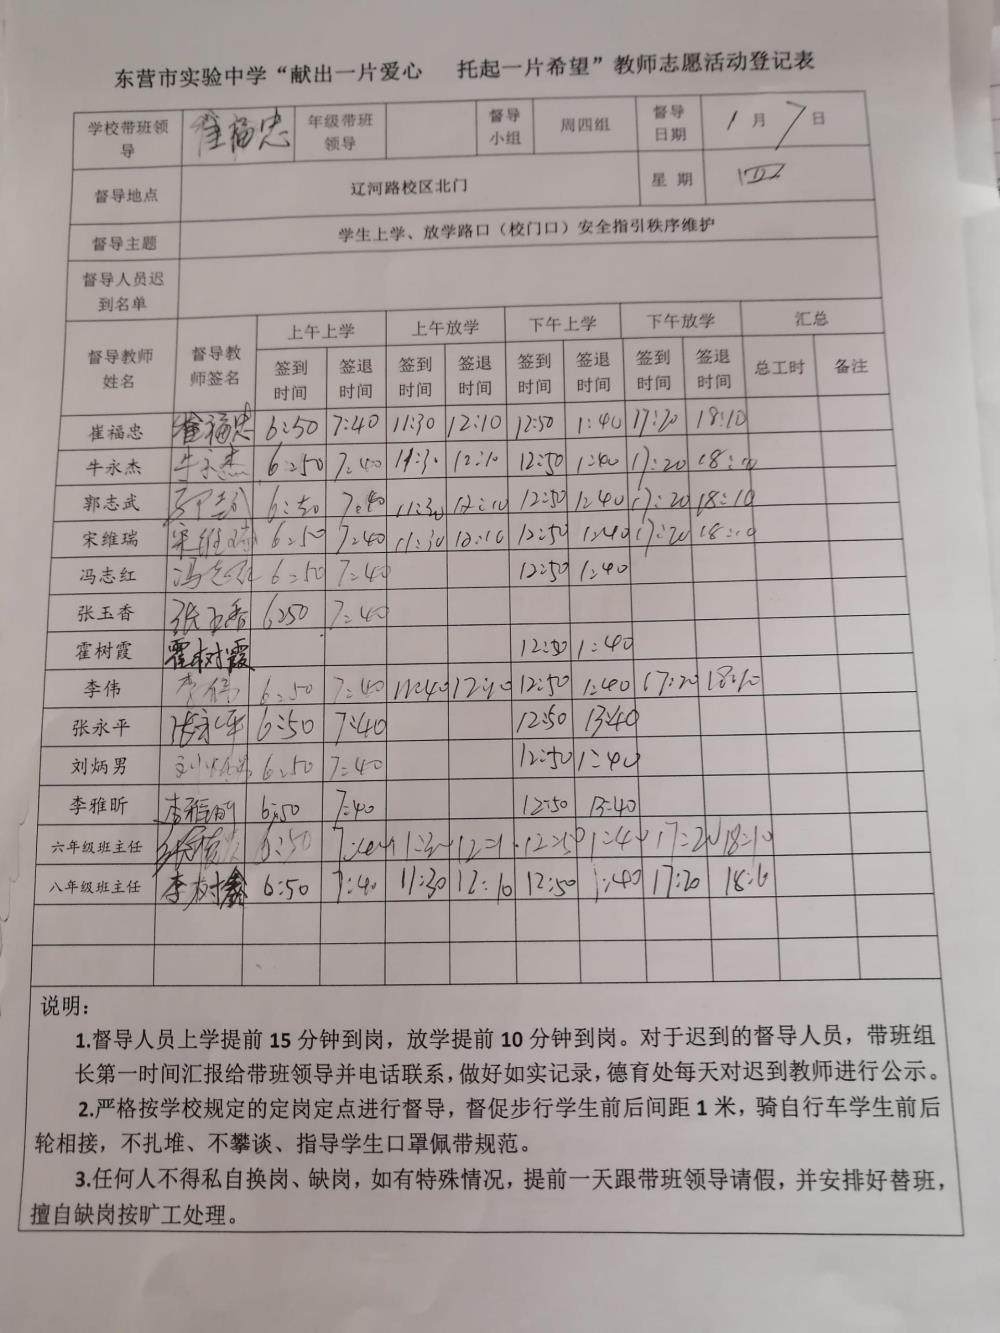 东营市实验中学“献出一片爱心 托起一片希望”教师志愿活动登记表
学校带班领导 崔福忠 年级带班领导 督导小组 周四组 督导日期 1月7日
督导地点 辽河路校区北门 星期 四
督导主题 学生上学、放学路口（校门口）安全指引秩序维护
督导人员迟到名单
督导教师姓名 督导教师签名 上午上学 上午放学 下午上学 下午放学 汇总
签到时间 签退时间 签到时间 签退时间 签到时间 签退时间 签到时间 签退时间 总工时 备注
崔福忠 崔福忠 6:50 7:40 11:30 12:10 12:50 1:40 17:20 18:10
牛永杰 牛永杰 6:50 7:40 11:30 12:10 12:50 1:40 17:20 18:10
郭志武 6:50 7:40 11:30 12:10 12:50 1:40 17:20 18:10
宋维瑞 宋维瑞 6:50 7:40 11:30 12:10 12:50 1:40 17:20 18:10
冯志红 冯志红 6:50 7:40 12:50 1:40
张玉香 张玉香 6:50 7:40
霍树霞 霍树霞 12:50 1:40
李伟 李伟 6:50 7:40 11:40 12:10 12:50 1:40 17:20 18:10
张永平 张永平 6:50 7:40 12:50 13:40
刘炳男 刘炳男 6:50 7:40 12:50 1:40
李雅昕 李雅昕 6:50 7:40 12:50 13:40
六年级班主任 6:50 7:40 11:30 12:1 12:50 1:40 17:20 18:10
八年级班主任 李树鑫 6:50 7:40 11:30 12:10 12:50 1:40 17:20 18:10
说明：
1.督导人员上学提前 15 分钟到岗，放学提前 10 分钟到岗。对于迟到的督导人员，带班组
长第一时间汇报给带班领导并电话联系，做好如实记录，德育处每天对迟到教师进行公示。
2.严格按学校规定的定岗定点进行督导，督促步行学生前后间距 1 米，骑自行车学生前后
轮相接，不扎堆、不攀谈、指导学生口罩佩带规范。
3.任何人不得私自换岗、缺岗，如有特殊情况，提前一天跟带班领导请假，并安排好替班，
擅自缺岗按旷工处理。